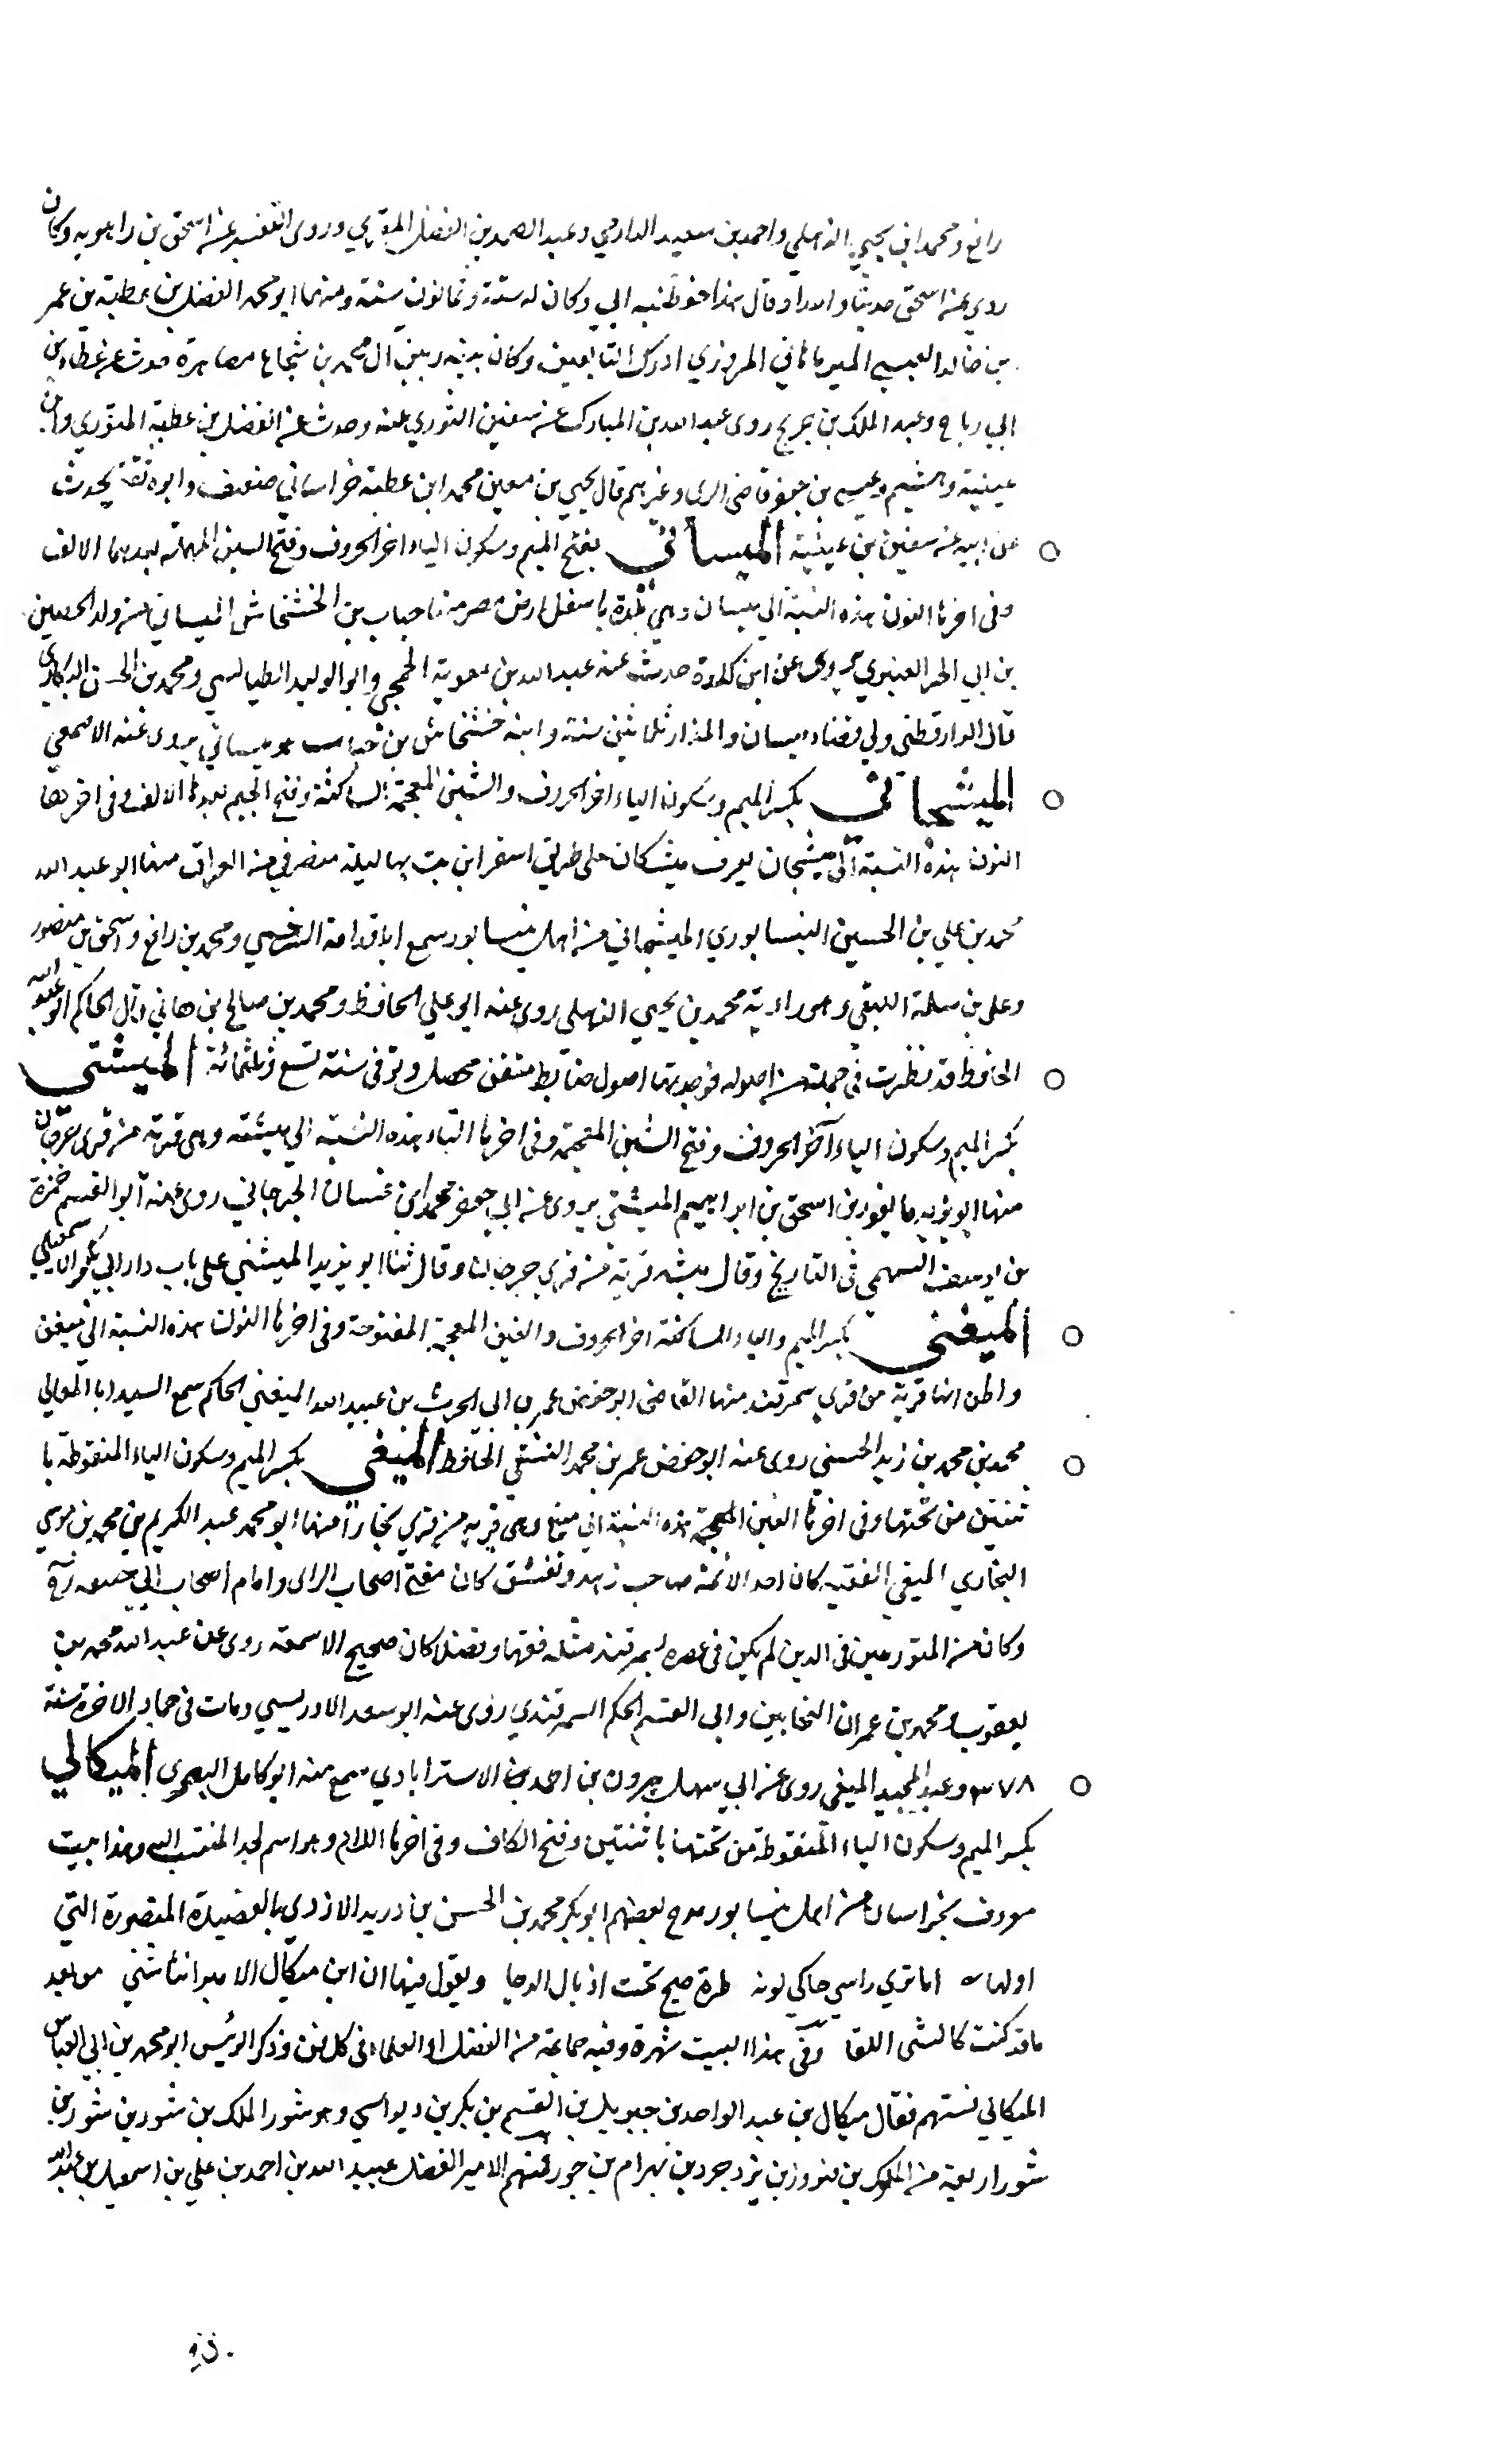 رافع ومحمد ابن يحيى الذهلي واحمد بن سعيد الدارمي وعبد الصمد بن الفضل المقري وروى التفسير عنه اسحق بن راهويه وكان
روى عنه اسحق حديثا واحدا وقال هذا حفظنيه ابي وكان له ستة وثمانون سنة ومنها ابو محمد الفضل بن عطية بن عمر
بن خالد العبسي الميرماهاني المروزي ادرك التابعين وكان بينه وبين ال محمد بن شجاع مصاهرة حدث عن عطاء بن
ابي رباح وعبد الملك بن جريج روى عبد الله بن المبارك عن سفين الثوري عنه وحدث عن الفضل بن عطية الثوري وابن
عيينة وهشيم وعيسى بن جعفر قاضى الرى وغيرهم قال يحيى بن معين محمد ابن عطية خراساني ضعيف وابوه ثقة يحدث
عن ابيه عنه سفين بن عيينة الميساني بفتح الميم وسكون الياء اخر الحروف وفتح السين المهملة بعدهما الالف
وفى اخرها النون هذه النسبة الى ميسان وهي بلدة باسفل ارض مصر منها حباب بن الخشخاش الميساني من ولد الحصين
بن ابي الحر العنبري يروى عن ابن كلدة حدث عنه عبد الله بن معوية الجمحي وابو الوليد الطيالسي ومحمد بن الحسن
قال الدارقطنى ولي قضاء ميسان والمذار ثلاثين سنة وابنه خشخاش بن حباب هو ميساني يروى عنه الاصمعي
الميشجاني بكسر الميم وسكون الياء اخر الحروف والشين المعجمة الساكنة وفتح الجيم بعدها الالف وفى اخرها
النون هذه النسبة الى ميشجان يعرف ميشكان على طريق اسفراين بت بها ليلة منصرفي من العراق منها ابو عبد الله
محمد بن علي بن الحسين النيسابوري الميشجاني من اهل نيسابور سمع ابا قدامة السرخسي ومحمد بن رافع واسحق بن منصور
وعلى بن سلمة اللبقي وهو راوية محمد بن يحيى الذهلى روى عنه ابو علي الحافظ ومحمد بن صالح بن هاني وقال الحاكم ابو عبد الله
الحافظ قد نظرت في جملة من اصوله فوجدتها اصول ضابط متقن محصل وتوفى سنة تسع وثلثمائة الميشتى
بكسر الميم وسكون الياء آخر الحروف وفتح الشين المعجمة وفى اخرها التاء هذه النسبة الى ميشة وهى قرية من قرى جرجان
منها ابو يزيد بن اسحق بن ابراهيم الميشتى يروى عن ابي جعفر محمد بن غسان الجرجاني روى عنه ابو القسم حمزة
بن يوسف السهمي فى التاريخ وقال ميشه قرية من قرى جرجان وقال ثنا ابو يزيد الميشتي على باب دار ابي بكر الاسمعيلي
الميغني بكسر الميم والياء الساكنة اخر الحروف والغين المعجمة المفتوحة وفى اخرها النون هذه النسبة الى ميغن
واظن انها قرية من قرى سمرقند منها القاضى ابو حفص عمر بن ابي الحرث بن عبيد الله الميغني الحاكم سمع السيد ابا المعالي
محمد بن محمد بن زيد الحسيني روى عنه ابو حفص عمر بن محمد النسفي الحافظ الميغي بكسر الميم وسكون الياء المنقوطة با
ثنتين من تحتها وفى اخرها الغين المعجمة هذه النسبة الى ميغ وهى قرية من قرى بخارا منها ابو محمد عبد الكريم بن محمد بن موسي
البخاري الميغي الفقيه كان احد الائمة صاحب زهد وتقشف كان مفتى اصحاب الراى وامام اصحاب ابي حنيفة رح
وكان من المتورعين فى الدين لم يكن فى عصره بسمرقند مثله فقها وفضلا كان صحيح الاسمعة روى عن عبد الله محمد بن
يعقوب ومحمد بن عمران البخاريين وابى القسم الحكم السمرقندي روى عنه ابو سعد الادريسي ومات فى جمادى الاخرة سنة
٣٧٨ وعبد المجيد الميغي روى عن ابي سهل هرون بن احمد بن الاسترابادي سمع منه ابو كامل البصري الميكالي
بكسر الميم وسكون الياء المنقوطة من تحتها باثنتين وفتح الكاف وفى اخرها اللام وهو اسم لجد المنتسب اليه وهذا بيت
معروف بخراسان من اهل نيسابور مدح بعضهم ابو بكر محمد بن الحسن بن دريد الازدي بالقصيدة المقصورة التى
اولها ؎ اما تري راسي حاكي لونه طرة صبح تحت اذيال الدجا ويقول فيها ان ابن ميكال الامير انتاشني من بعد
ما قد كنت كالشى اللقا وفى هذا البيت شهرة وفيه جماعة من الفضلاء والعلماء فى كل فن وذكر الرئيس ابو محمد بن ابي العباس
الميكالي نسبتهم فقال ميكال بن عبد الواحد بن جبريل بن القسم بن بكر بن ديواسي وهو شور الملك بن شور بن شور بن
شور اربعة من الملوك بن فيروز بن يزدجرد بن بهرام بن جور فمنهم الامير الفضل عبيد الله بن احمد بن علي بن اسمعيل بن عبد الله